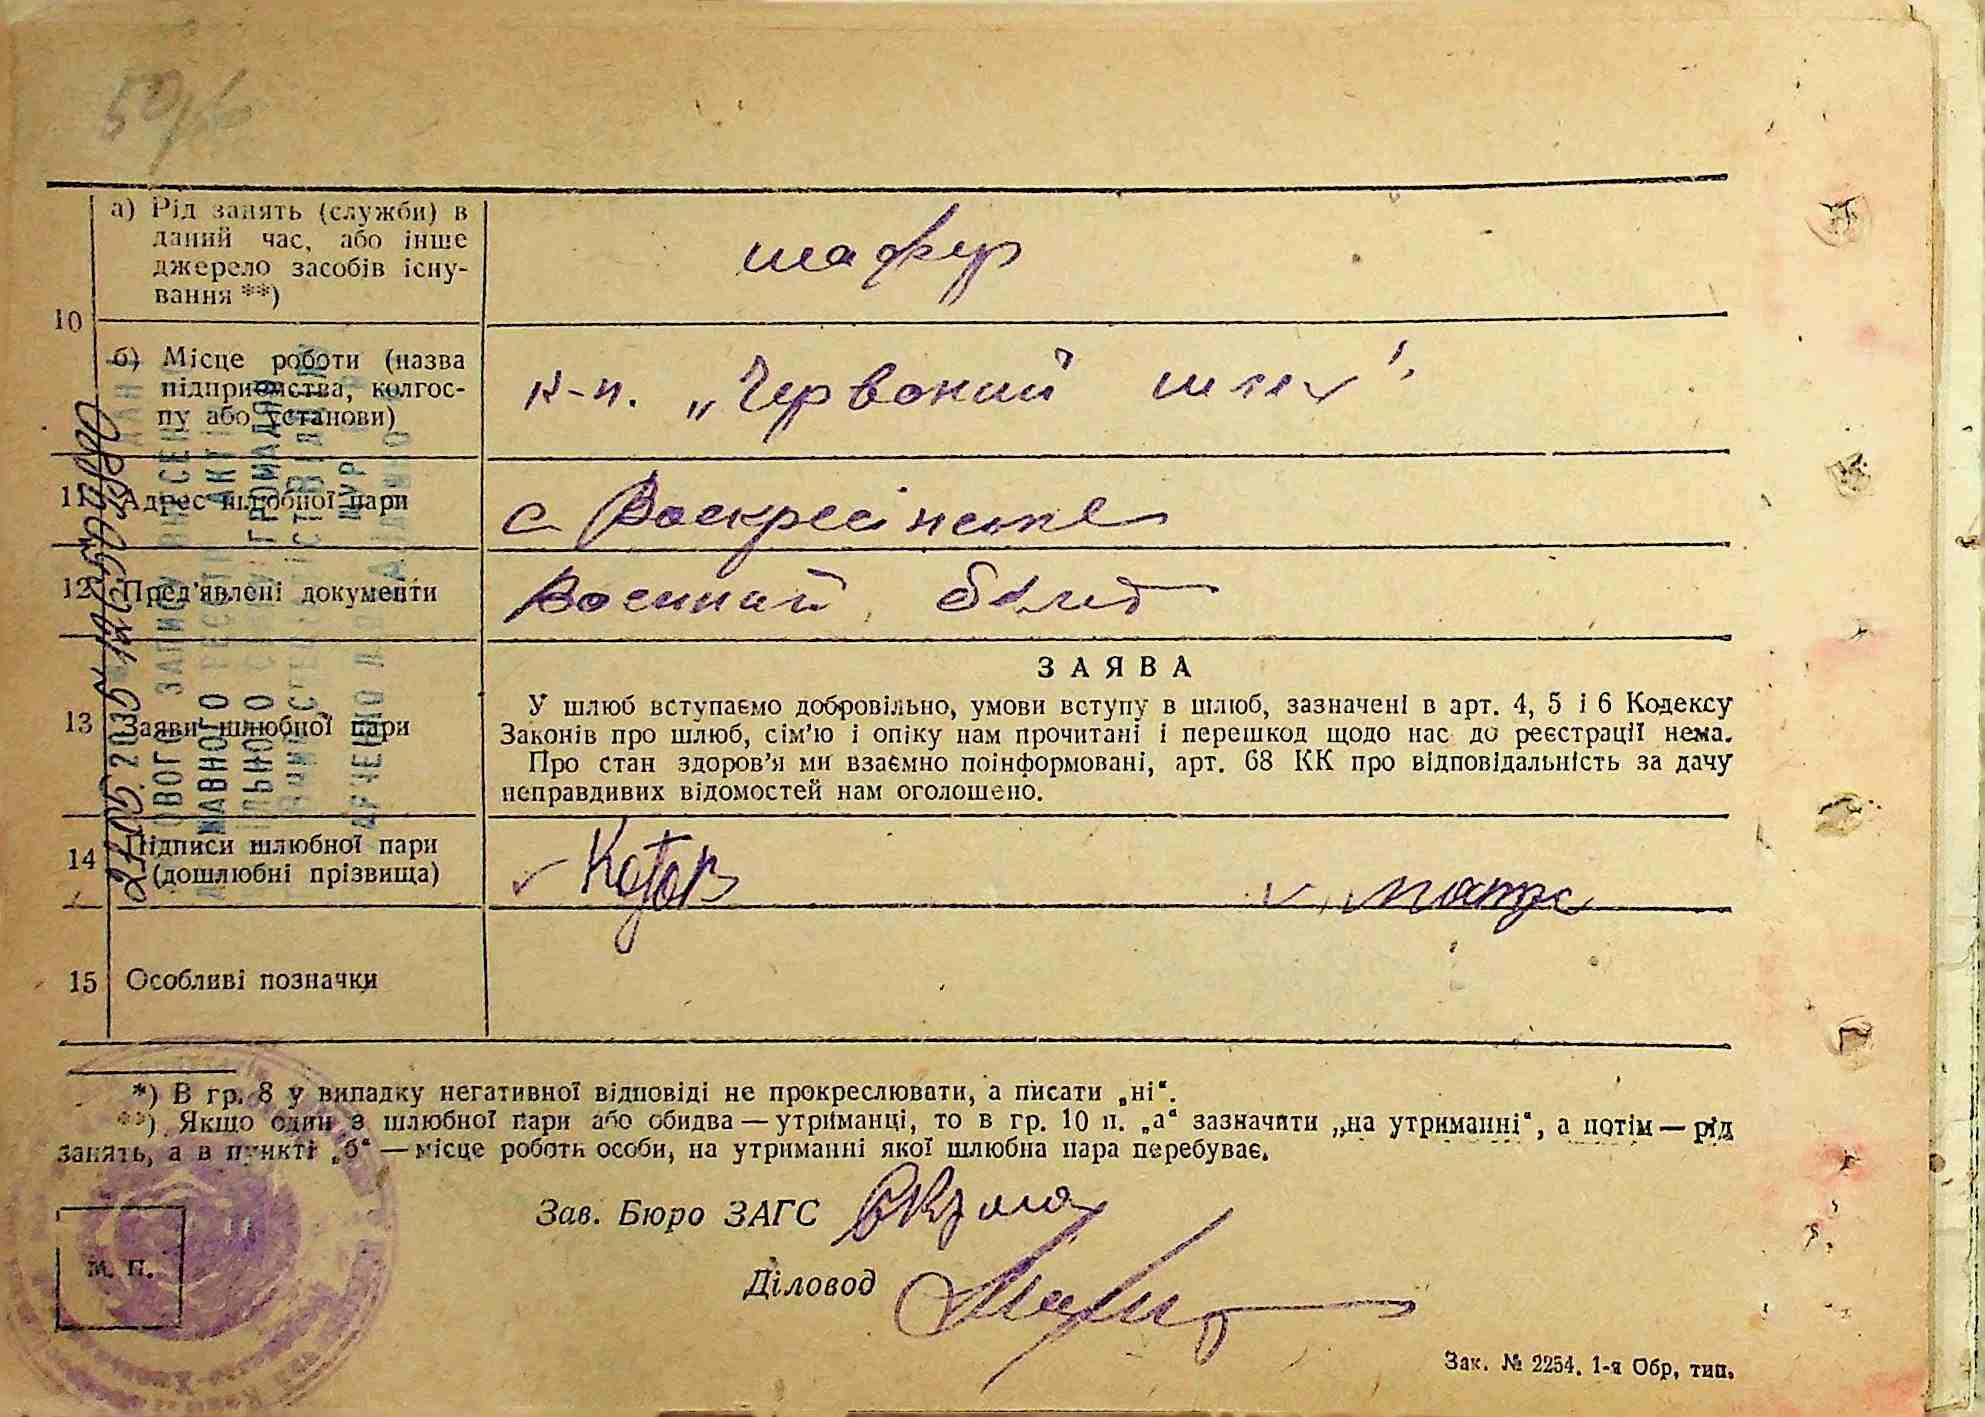 10
а) Рід занять (служби) в
даний час, або інше
джерело засобів існу-
вання **)
шафер
б) Місце роботи (назва
підприємства, колгос-
пу або установи)
к-п. „Червоний шлях"
11 Адрес шлюбної пари
с Воскресінське
12 Пред'явлені документи
Военний білет
13 Заяви шлюбної пари
ЗАЯВА
У шлюб вступаємо добровільно, умови вступу в шлюб, зазначені в арт. 4, 5 і 6 Кодексу
Законів про шлюб, сім'ю і опіку нам прочитані і перешкод щодо нас до реєстрації нема.
Про стан здоров'я ми взаємно поінформовані, арт. 68 КК про відповідальність за дачу
неправдивих відомостей нам оголошено.
14 Підписи шлюбної пари
(дошлюбні прізвища)
Котов
15 Особливі позначки
*) В гр. 8 у випадку негативної відповіді не прокреслювати, а писати „ні“.
**) Якщо один з шлюбної пари або обидва — утриманці, то в гр. 10 п. „а“ зазначити „на утриманні“, а потім — рід
занять, а в пункті „б“ — місце роботи особи, на утриманні якої шлюбна пара перебуває.
Зав. Бюро ЗАГС
Діловод
М. П.
Зак. № 2254. 1-я Обр, тип.